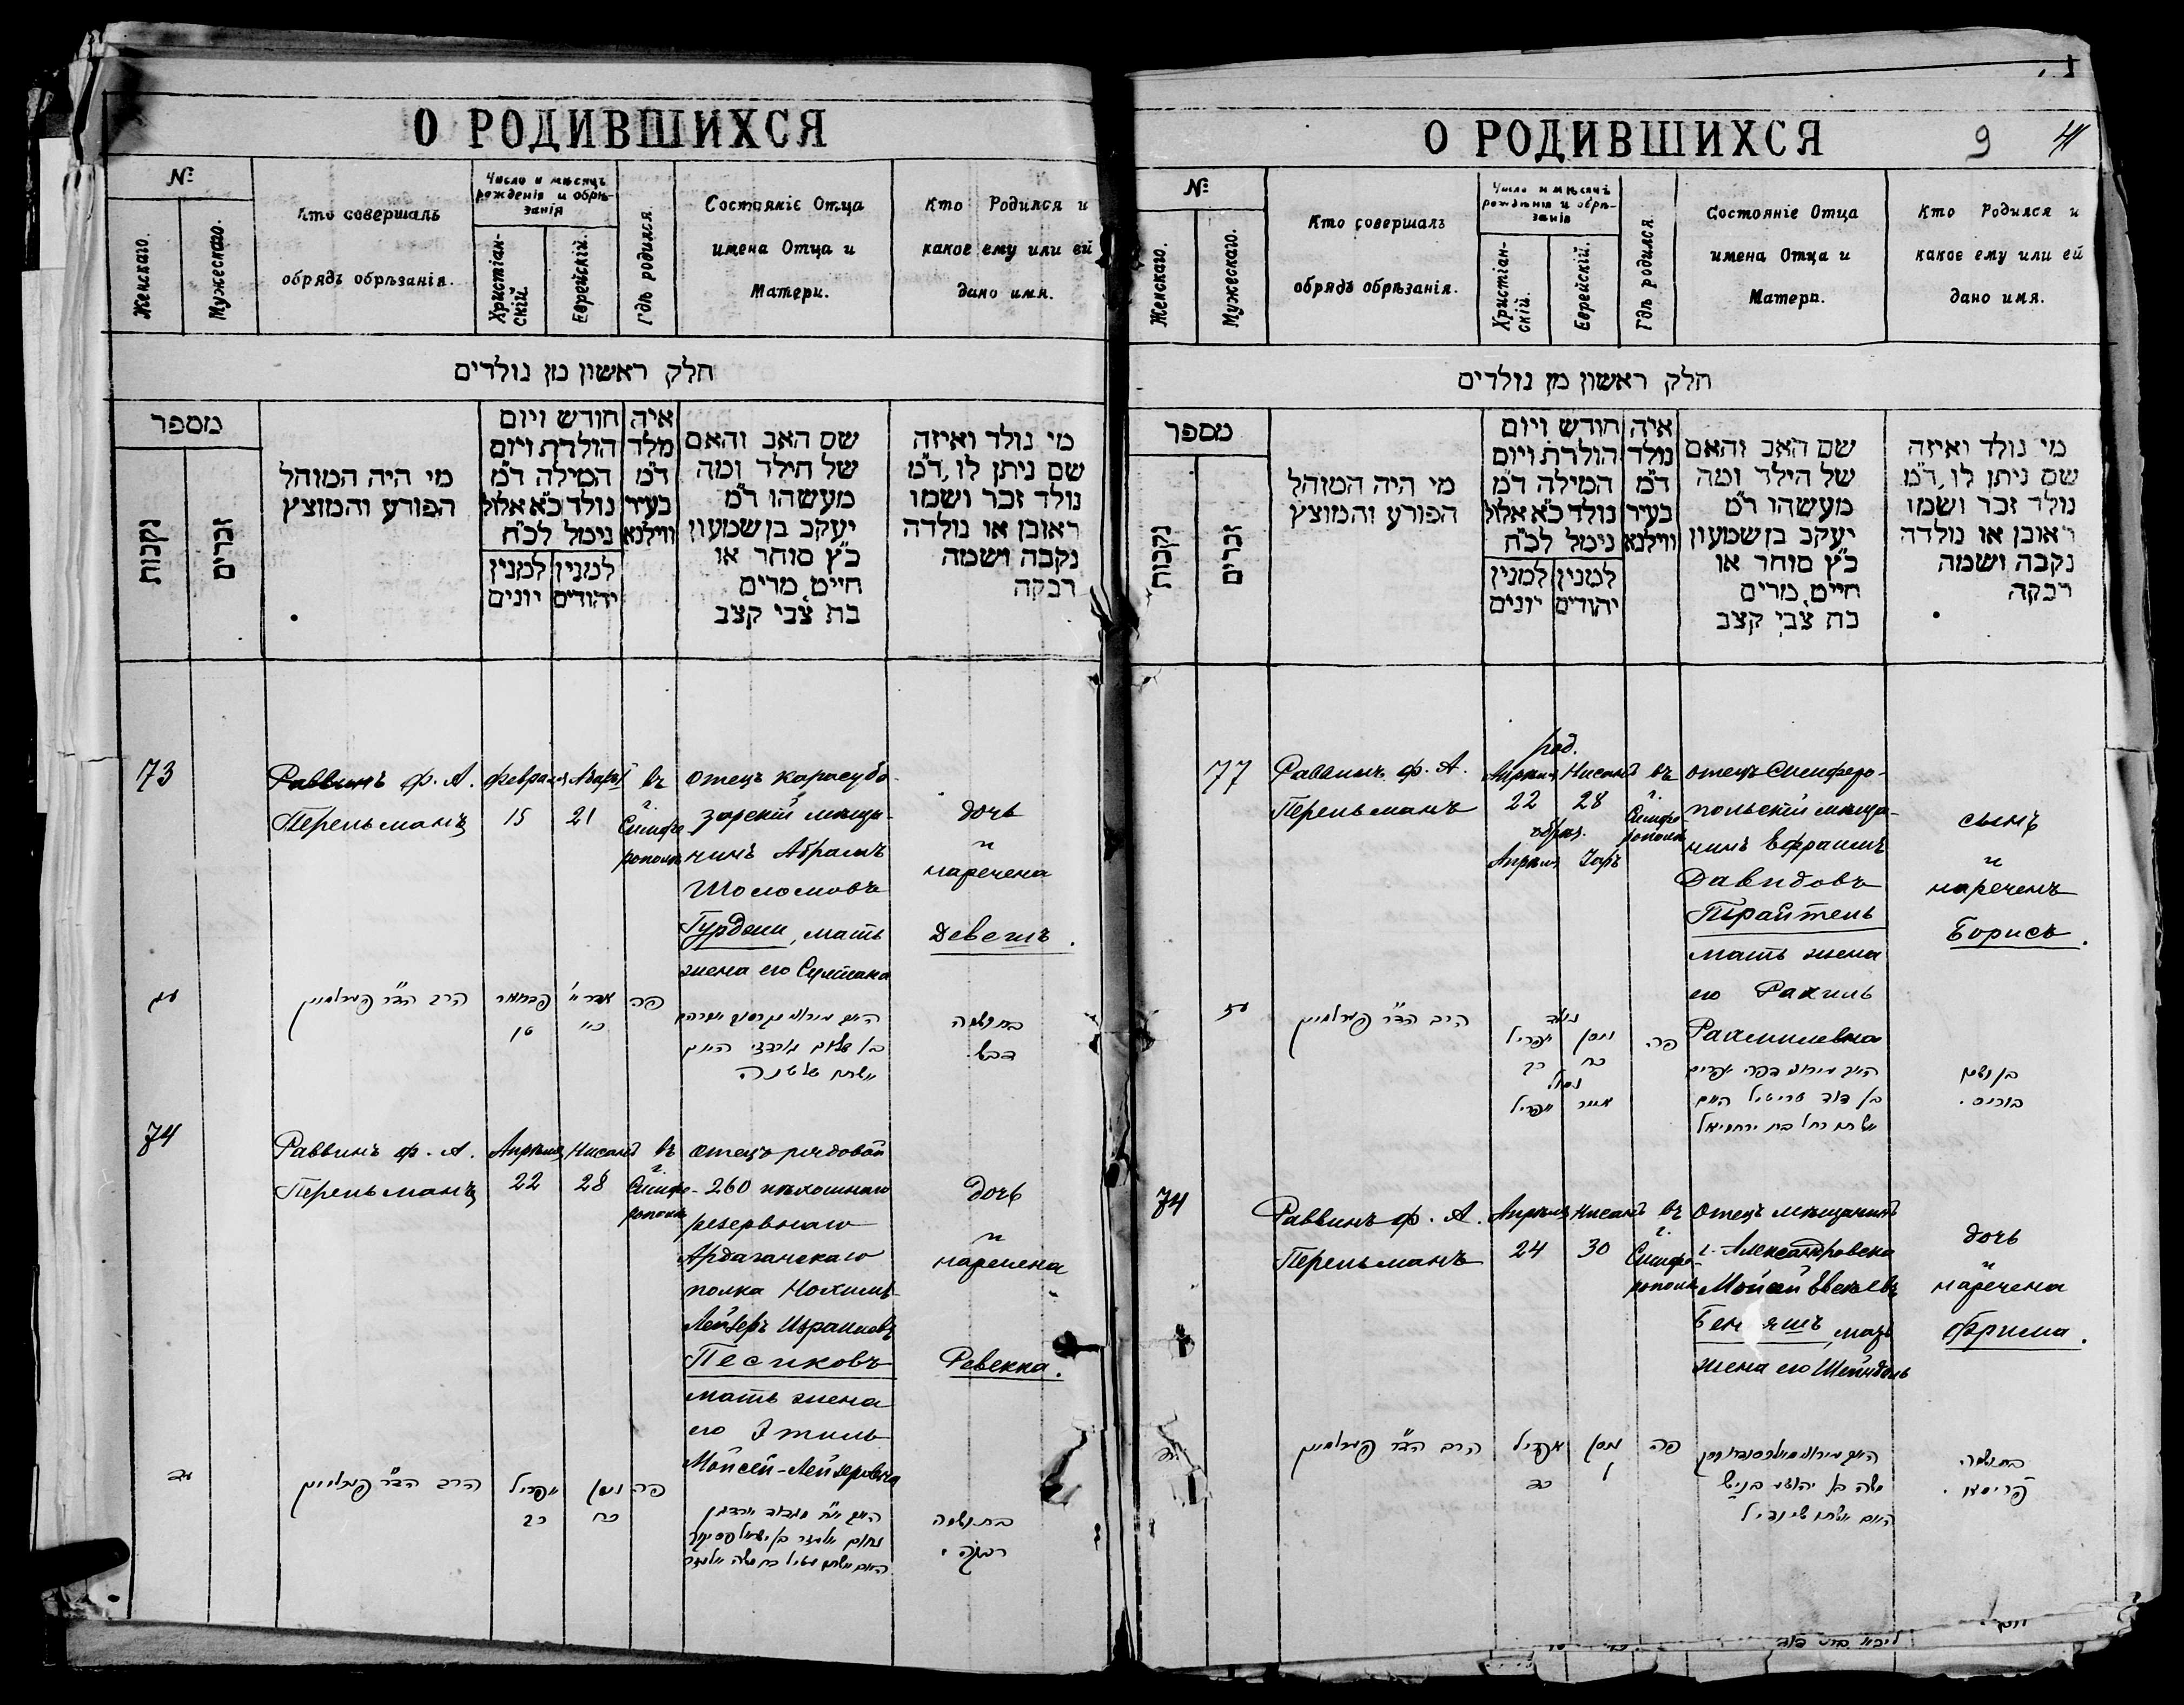 О РОДИВШИХСЯ
№
Женскаго.
Мужескаго.
Кто совершалъ
обрядъ обрѣзанія.
Число и мѣсяцъ
рожденія и обрѣ-
занія
Христіан-
скій.
Еврейскій.
Гдѣ родился.
Состояніе Отца
имена Отца и
Матери.
Кто Родился и
какое ему или ей
дано имя.
חלק ראשון מן נולדים
מספר
נקבות
זכרים
מי היה המוהל
הפורע והמוצץ
חודש ויום
הולדת ויום
המילה ד״מ
נולד כ״א אלול
נימל לכ״ח
למנין למנין
יהודים יונים
איה
מלד
ד״מ
בעיר
ווילנא
שם האב והאם
של הילד ומה
מעשהו ד״מ
יעקב בן שמעון
כ״ץ סוחר או
חייט מרים
בת צבי קצב
מי נולד ואיזה
שם ניתן לו ד״מ
נולד זכר ושמו
ראובן או נולדה
נקבה ושמה
רבקה
73
Раввинъ Ф. А.
Перельманъ
Февраля Адара I
15 21
въ
г.
Симфе-
рополѣ
отецъ карасубо-
зарскій мѣща-
нинъ Абрамъ
Шоломовъ
Гурджи, мать
жена его Султана
дочь
и
наречена
Девешъ.
הרב הד״ר פערלמאן
פה
בת ושמה
74
Раввинъ Ф. А.
Перельманъ
Апрѣля Нисанъ
22 28
въ
г.
Симфе-
рополѣ
отецъ рядовой
260 пѣхотнаго
резервнаго
Ардаганскаго
полка Нохимъ-
Лейзеръ Израилевъ
Песиковъ
мать жена
его Этиль
Мойсей-Лейзеровна
дочь
и
наречена
Ревекка.
הרב הד״ר פערלמאן
אפריל ניסן
כב כח
פה
בת ושמה
רבקה.
О РОДИВШИХСЯ
9
№
Женскаго.
Мужескаго.
Кто совершалъ
обрядъ обрѣзанія.
Число и мѣсяцъ
рожденія и обрѣ-
занія
Христіан-
скій.
Еврейскій.
Гдѣ родился.
Состояніе Отца
имена Отца и
Матери.
Кто Родился и
какое ему или ей
дано имя.
חלק ראשון מן נולדים
מספר
נקבות
זכרים
מי היה המוהל
הפורע והמוצץ
חודש ויום
הולדת ויום
המילה ד״מ
נולד כ״א אלול
נימל לכ״ח
למנין למנין
יהודים יונים
איה
נולד
ד״מ
בעיר
ווילנא
שם האב והאם
של הילד ומה
מעשהו ד״מ
יעקב בן שמעון
כ״ץ סוחר או
חייט מרים
בת צבי קצב
מי נולד ואיזה
שם ניתן לו ד״מ
נולד זכר ושמו
ראובן או נולדה
נקבה ושמה
רבקה
77
Раввинъ Ф. А.
Перельманъ
род.
Апрѣля Нисанъ
22 28
обрѣз.
Апрѣля Іаръ
въ
г.
Симфе-
рополѣ
отецъ Симферо-
польскій мѣща-
нинъ Ефраимъ
Давидовъ
Трайтель
мать жена
его Рахиль
Рахмилевна
сынъ
и
нареченъ
Борисъ.
הרב הד״ר פערלמאן
נולד
אפריל ניסן
כב כח
נמול
אפריל אייר
פה
בן ושמו
בוריס.
74
Раввинъ Ф. А.
Перельманъ
Апрѣля Нисанъ
24 30
въ
г.
Симфе-
рополѣ
отецъ мѣщанинъ
г. Александровска
Мойсей Евсѣевъ
мать
жена его Шейндель
дочь
и
наречена
Фрима.
הרב הד״ר פערלמאן
אפריל ניסן
כד ל
פה
בת ושמה